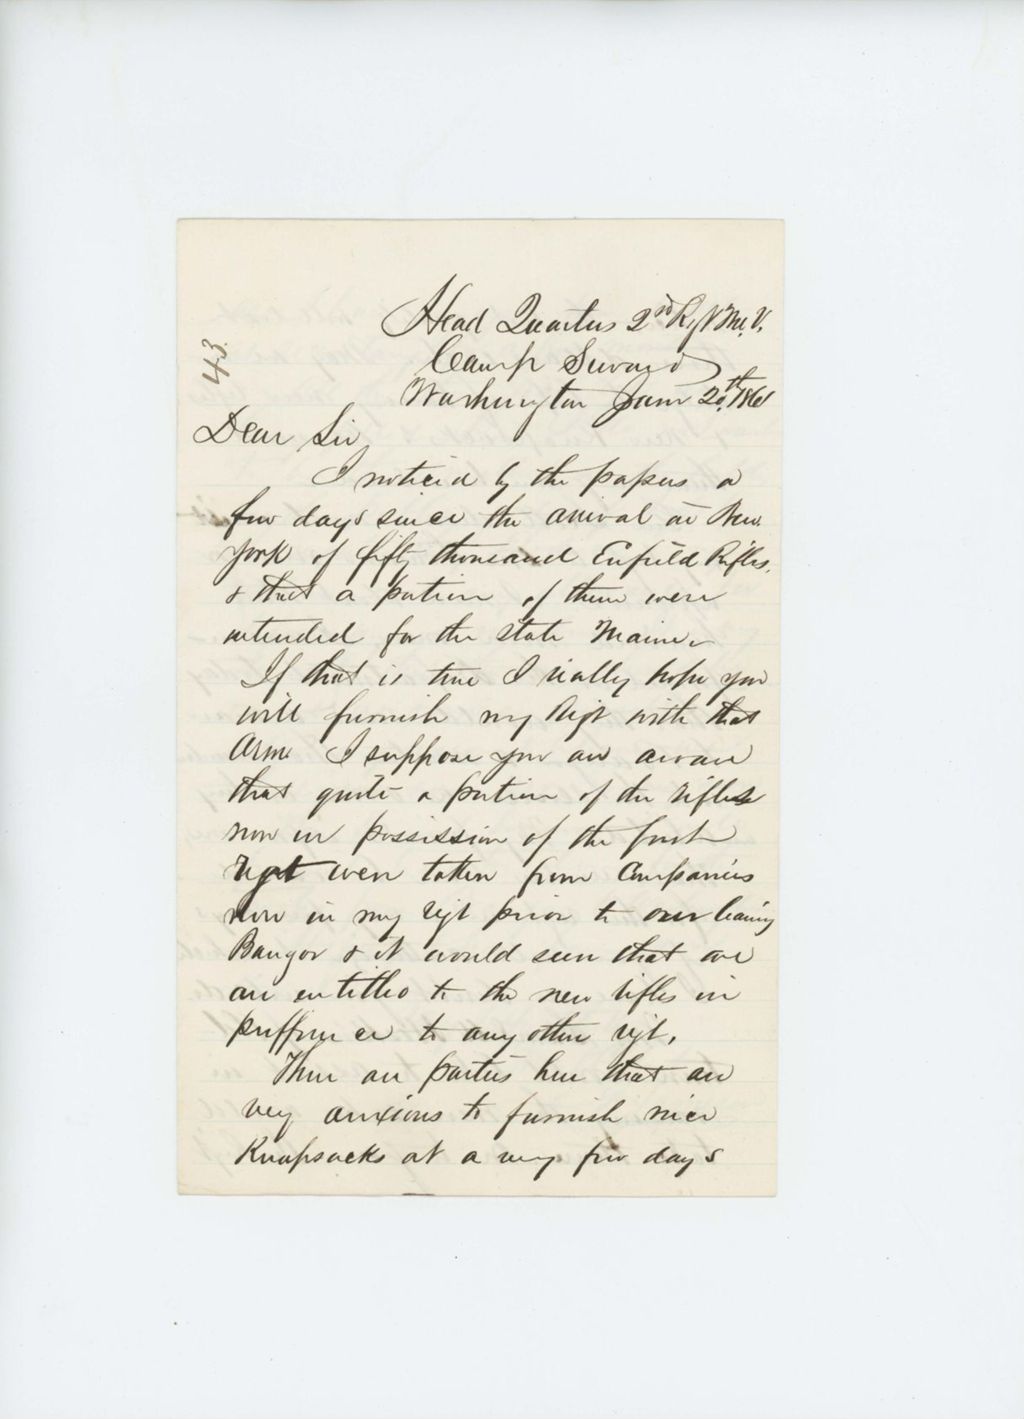 43.
Head Quarters 2nd Regt Me. V.
Camp Seward
Washington June 20th, 1861
Dear Sir
I noticed by the papers a
few days since the arrival at New
York of fifty thousand Enfield Rifles.
& that a portion of them were
intended for the state Maine.
If that is true I really hope you
will furnish my Regt with that
Arm. I suppose you are aware
that quite a portion of the rifles
now in possession of the first
Regt were taken from Companies
now in my regt prior to our leaving
Bangor & it would seem that we
are entitled to the new rifles in
prefference to any other regt.
There are parties here that are
very anxious to furnish nice
Knapsacks at a very few days